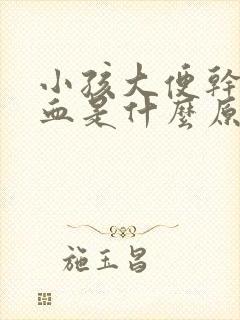 小孩大便幹
血是什麼原
施玉昌